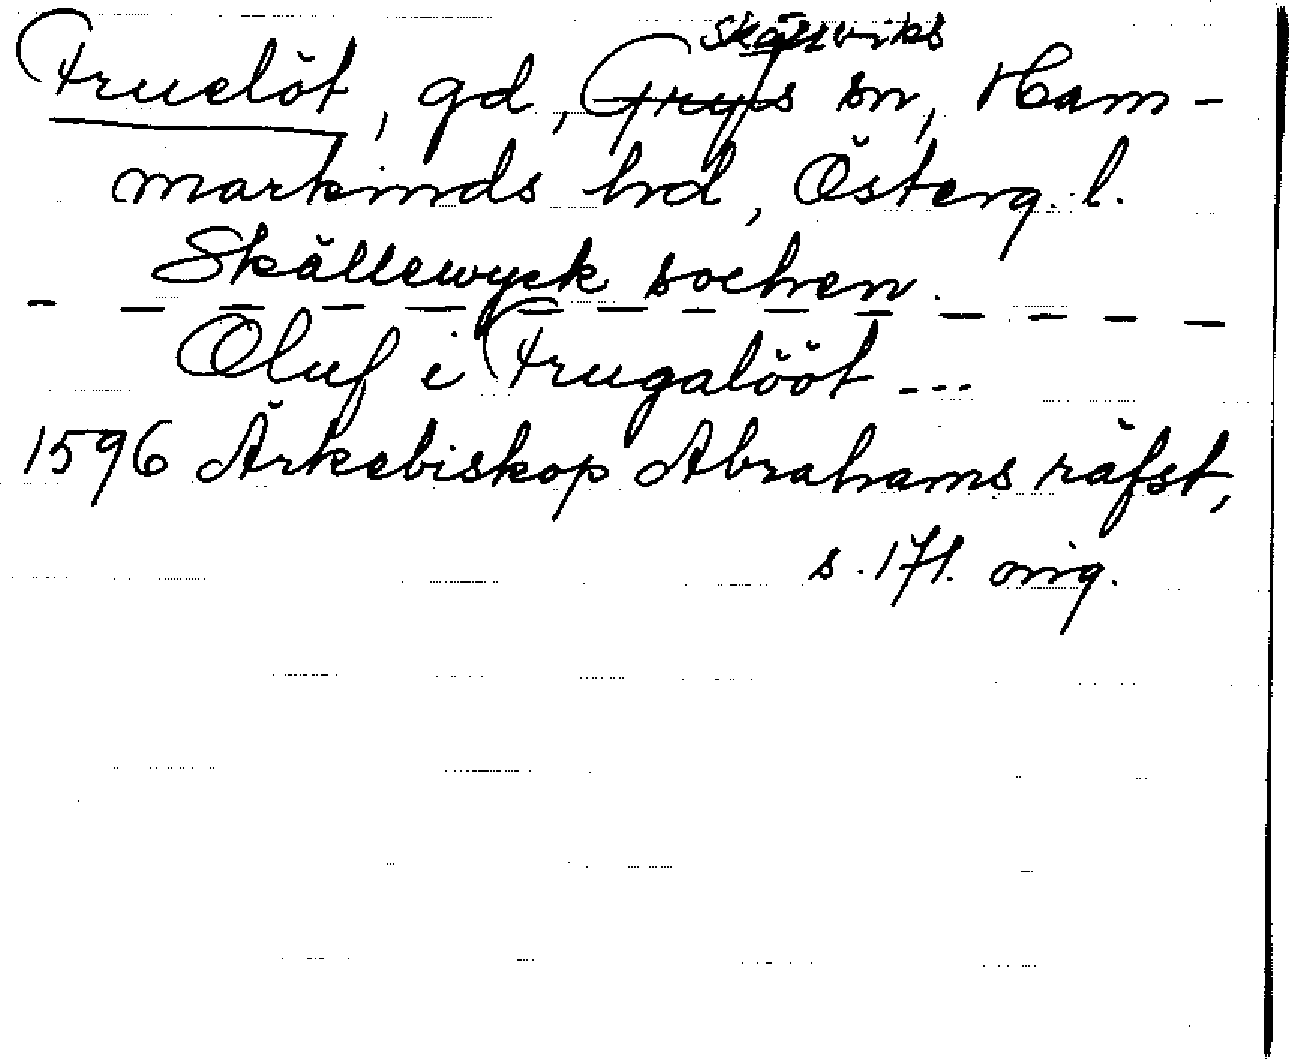 Skällviks
Fruelöt, gd, Gryts sn, Ham-
markinds hd, Österg. l.
Skällewyck sochen.
Oluf i Frugalööt ...
1596 Ärkebiskop Abrahams räfst,
s. 171. orig.